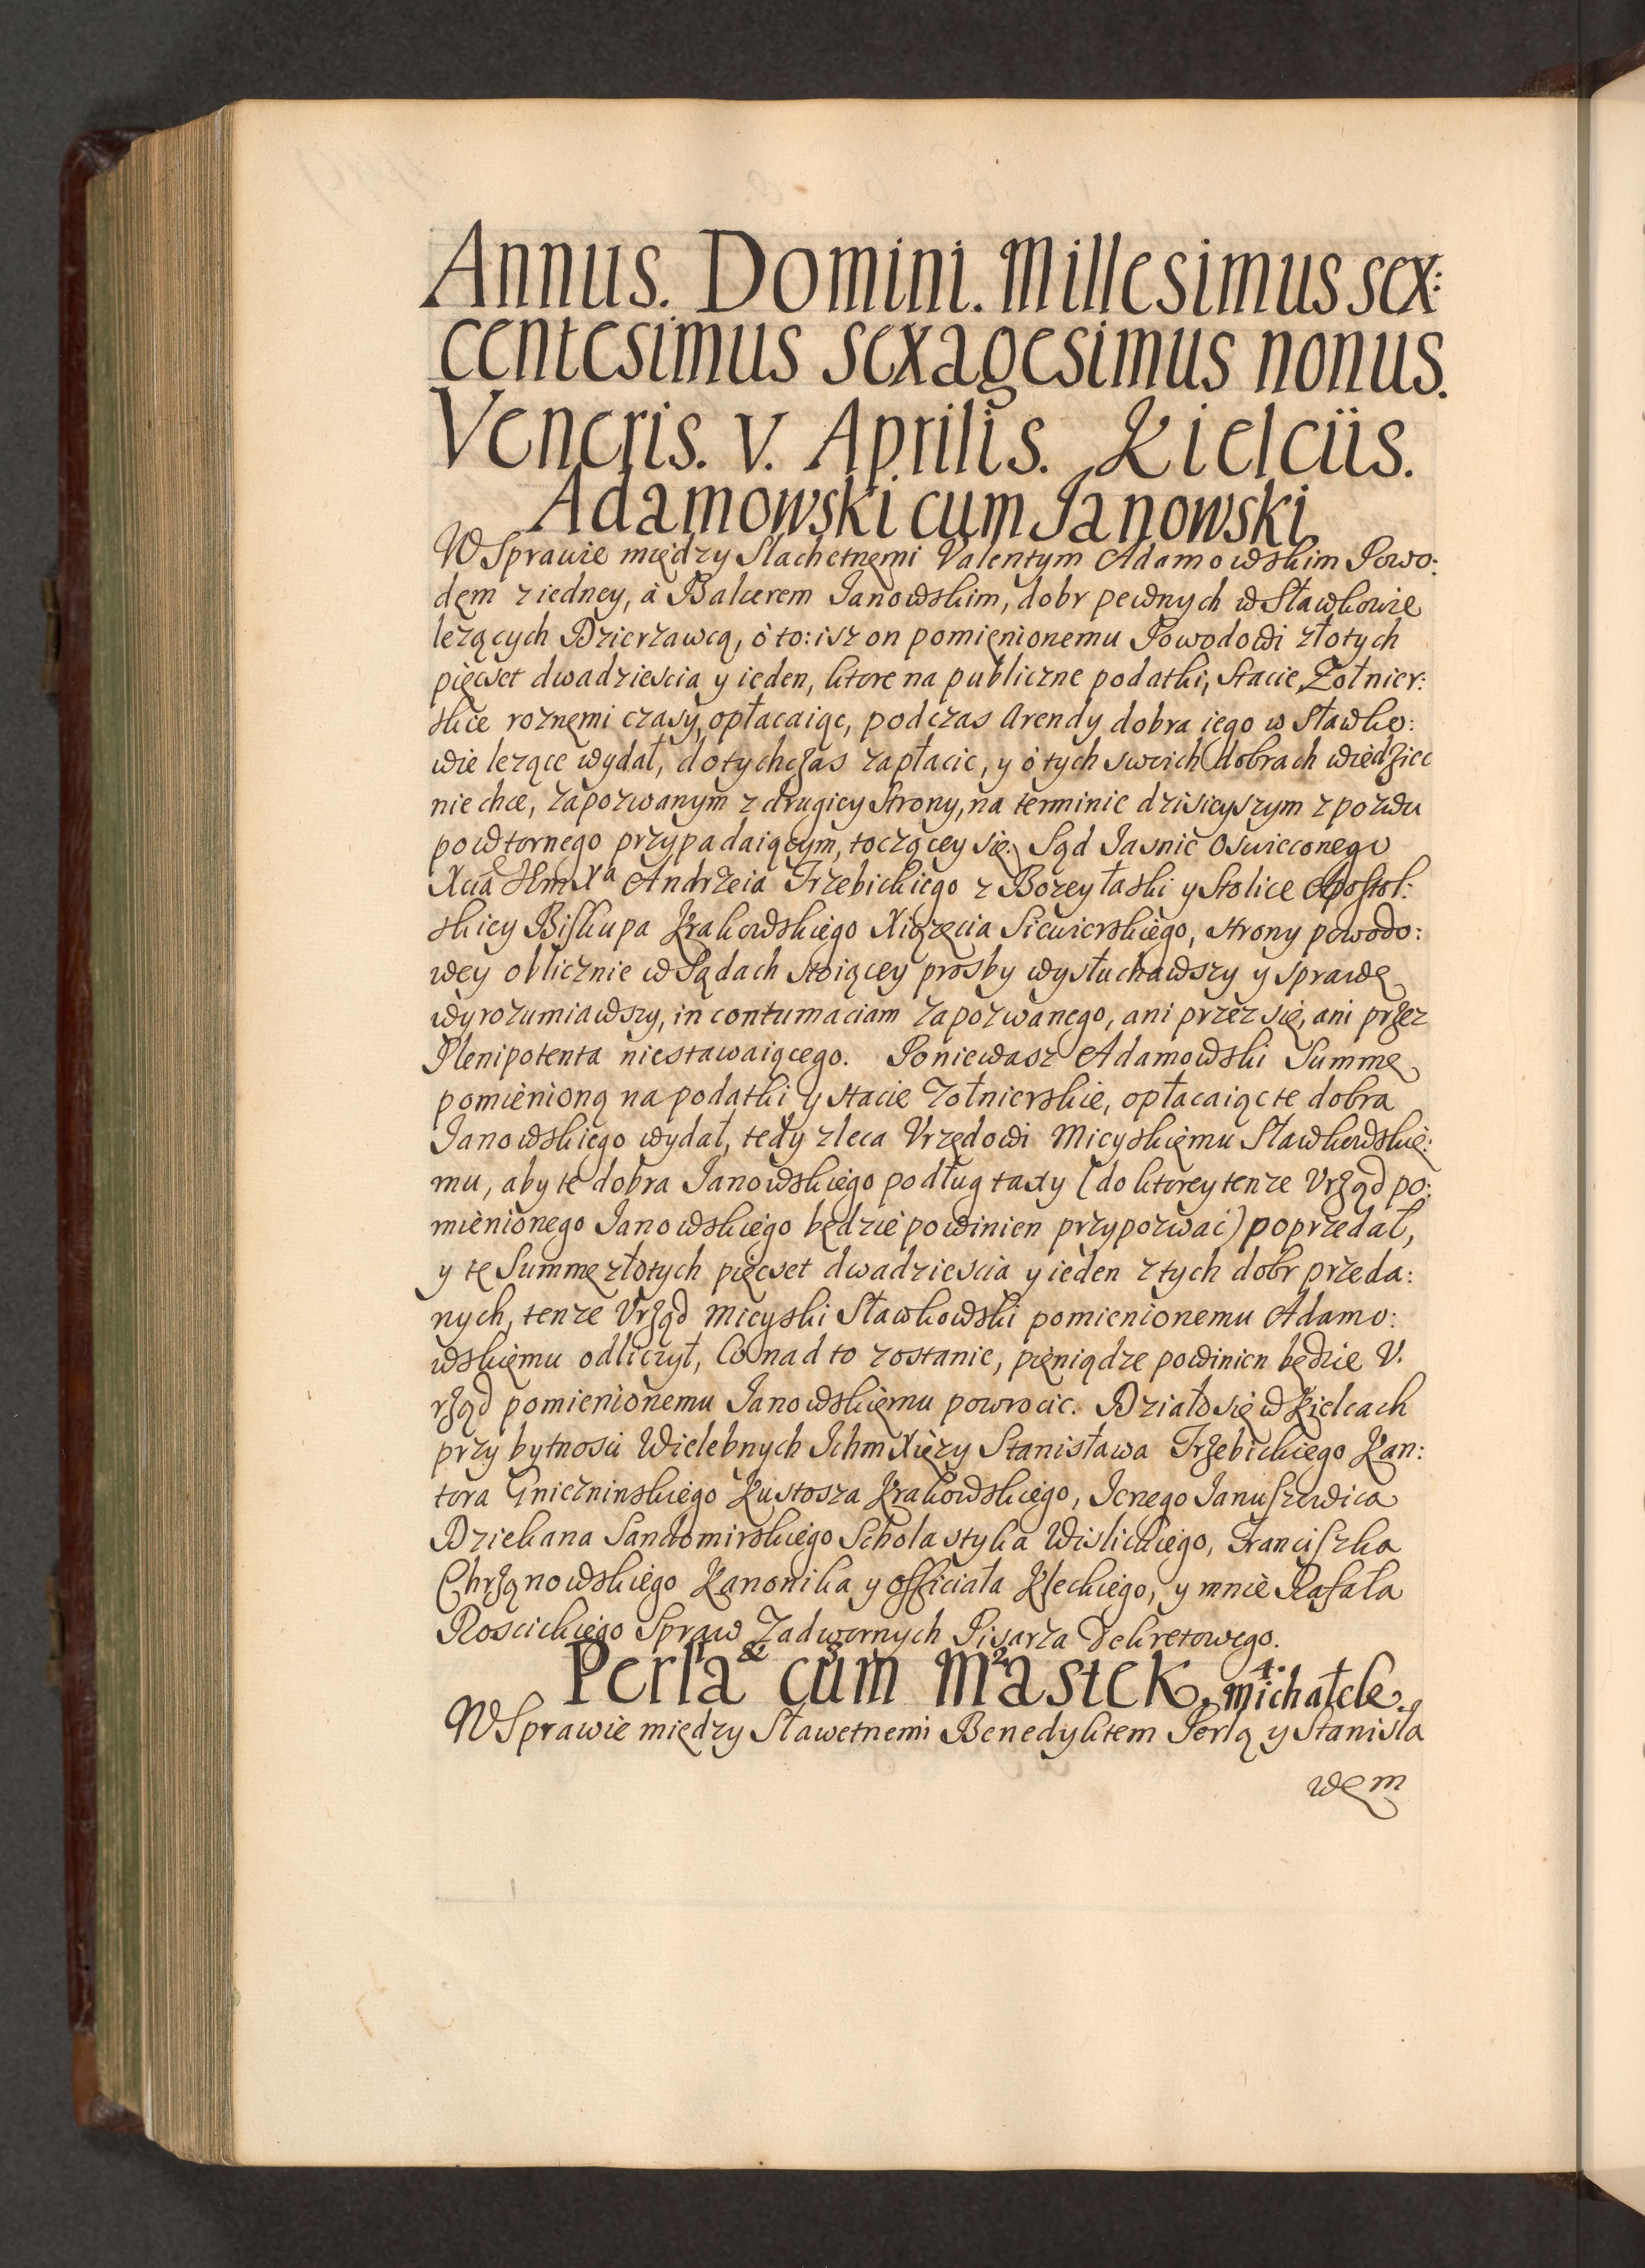 Annus. Domini. Millesimus sex:
centesimus sexagesimus nonus.
Veneris. v. Aprilis. Kielciis.
Adamowski cum Janowski
W Sprawie między Slachetnemi Valentym Adamowskim Powo:
dem z iedney, à Balcerem Janowskim, dobr pewnych w Sławkowie
lezących Dzierzawcą, ò to: isz on pomienionemu Powodowi złotych
pięcset dwadziescia y ieden, ktore na publiczne podatki, Stacie Zołnier:
skie roznemi czasy, opłacaiąc, podczas Arendy dobra iego w Sławko:
wie lezące wydał, dotychczas zapłacic, y ò tych swoich dobrach wiedziec
nie chce, zapozwanym z drugiey strony, na terminie dzisieyszym z pozwu
powtornego przypadaiącym, toczącey się. Sąd Jasnie Oswieconego
Xcia Jhm Xa Andrzeia Trzebickiego z Bozey łaski y Stolice Apostol:
skiey Biskupa Krakowskiego Xiązęcia Siewierskiego, strony powodo:
wey oblicznie w Sądach stoiącey prosby wysłuchawszy y sprawę
wyrozumiawszy, in contumaciam zapozwanego, ani przez się, ani przez
Plenipotenta niestawaiącego. Poniewasz Adamowski Summę
pomienioną na podatki y stacie zołnierskie, opłacaiąc te dobra
Janowskiego wydał, tedy zleca Vrzędowi Mieyskiemu Sławkowskie:
mu, aby te dobra Janowskiego podług taxy (do ktorey tenze Vrząd po:
mienionego Janowskiego będzie powinien przypozwac) poprzedał,
y tę Summę złotych pięcset dwadziescia y ieden z tych dobr przeda:
nych, tenze Vrząd Mieyski Sławkowski pomienionemu Adamo:
wskiemu odliczył, Co nad to zostanie, pieniądze powinien będzie V.
rząd pomienionemu Janowskiemu powrocic. Działo się w Kielcach
przy bytnosci Wielebnych Jchm Xięzy Stanisława Trzebickiego Kan:
tora Gniezninskiego Kustosza Krakowskiego, Jerzego Januszewica
Dziekana Sandomirskiego Scholastyka Wislickiego, Franciszka
Chrząnowskiego Kanonika y Officiała Kieckiego, y mnie Rafała
Roscickiego Spraw Zadwornych Pisarza Dekretowego.
Perla & cum Mastek, Michałek.
W Sprawie między Sławetnemi Benedyktem Perlą y Stanisła
wem